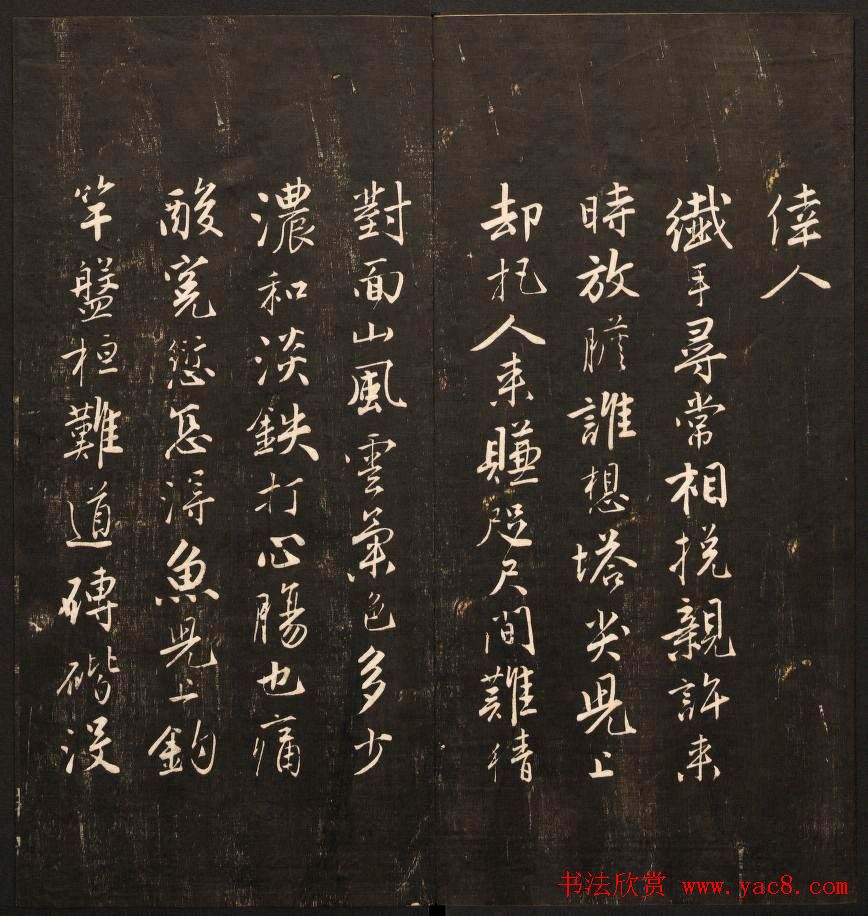 偉人
纖手尋常相挽親許来
時放膽誰想塔尖兒上
却把人来賺咫尺間難猜
對面山風雲氣色多少
濃和淡鉄打心腸也痛
酸寃愆怎得魚兒上鈎
竿盤桓難道磚堦没
书法欣赏 www.yac8.com